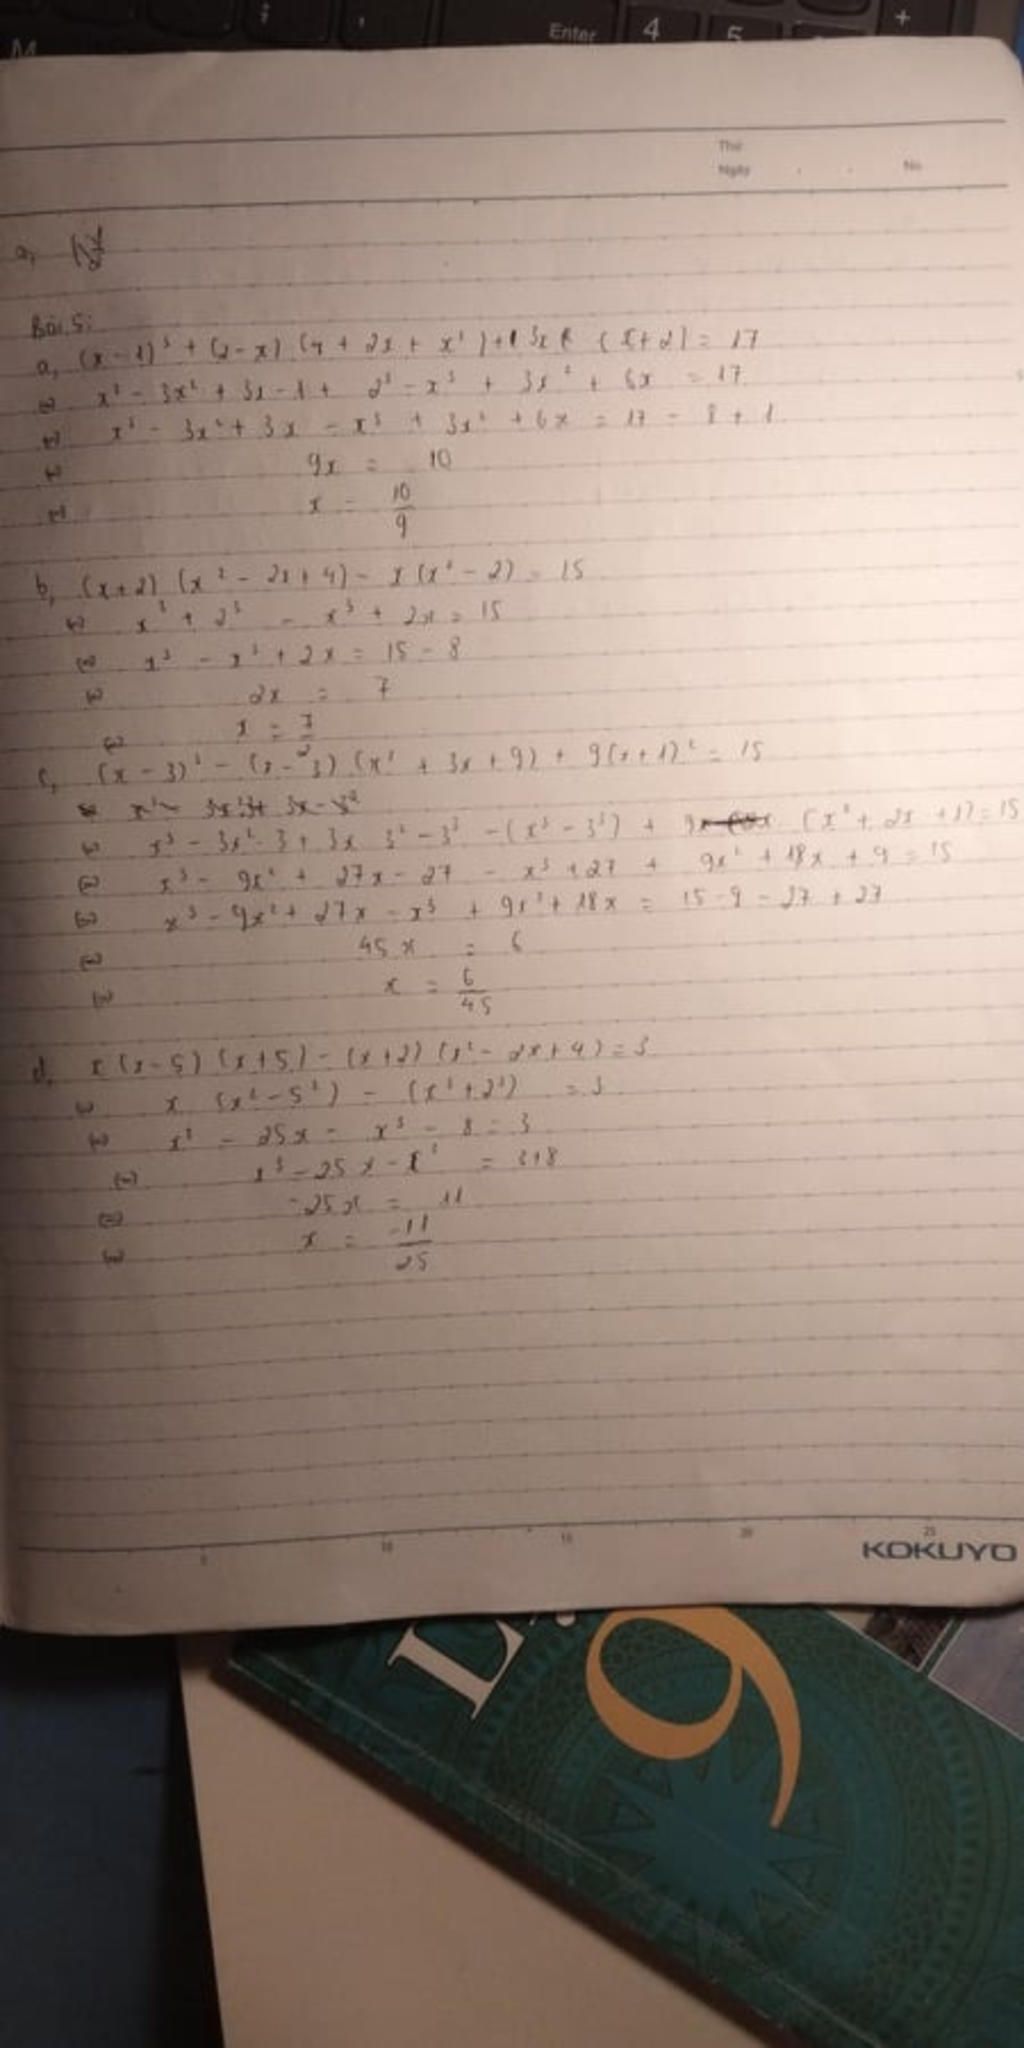 ;
,
+
M
Enter
4
5
Thứ
Ngày . . No.
a,
Bài 5:
a, (x - 1)³ + (2 - x) (4 + 2x + x²) + 3x (x + 2) = 17
⇔ x³ - 3x² + 3x - 1 + 2³ - x³ + 3x² + 6x = 17
⇔ x³ - 3x² + 3x - x³ + 3x² + 6x = 17 - 8 + 1
⇔ 9x = 10
⇔ x = 10/9
b, (x+2) (x² - 2x + 4) - x (x² - 2) = 15
⇔ x³ + 2³ - x³ + 2x = 15
⇔ x³ - x³ + 2x = 15 - 8
⇔ 2x = 7
⇔ x = 7/2
c, (x - 3)³ - (x - 3) (x² + 3x + 9) + 9(x+1)² = 15
⇔ x³ - 3x².3 + 3x 3² - 3³ - (x³ - 3³) + 9 (x² + 2x + 1) = 15
⇔ x³ - 9x² + 27x - 27 - x³ + 27 + 9x² + 18x + 9 = 15
⇔ x³ - 9x² + 27x - x³ + 9x² + 18x = 15 - 9 - 27 + 27
⇔ 45x = 6
⇔ x = 6/45
d, x (x-5) (x+5) - (x+2) (x² - 2x + 4) = 3
⇔ x (x² - 5²) - (x³ + 2³) = 3
⇔ x³ - 25x - x³ - 8 = 3
⇔ x³ - 25x - x³ = 3+8
⇔ -25x = 11
⇔ x = -11/25
5 10 15 20 25
KOKUYO
9